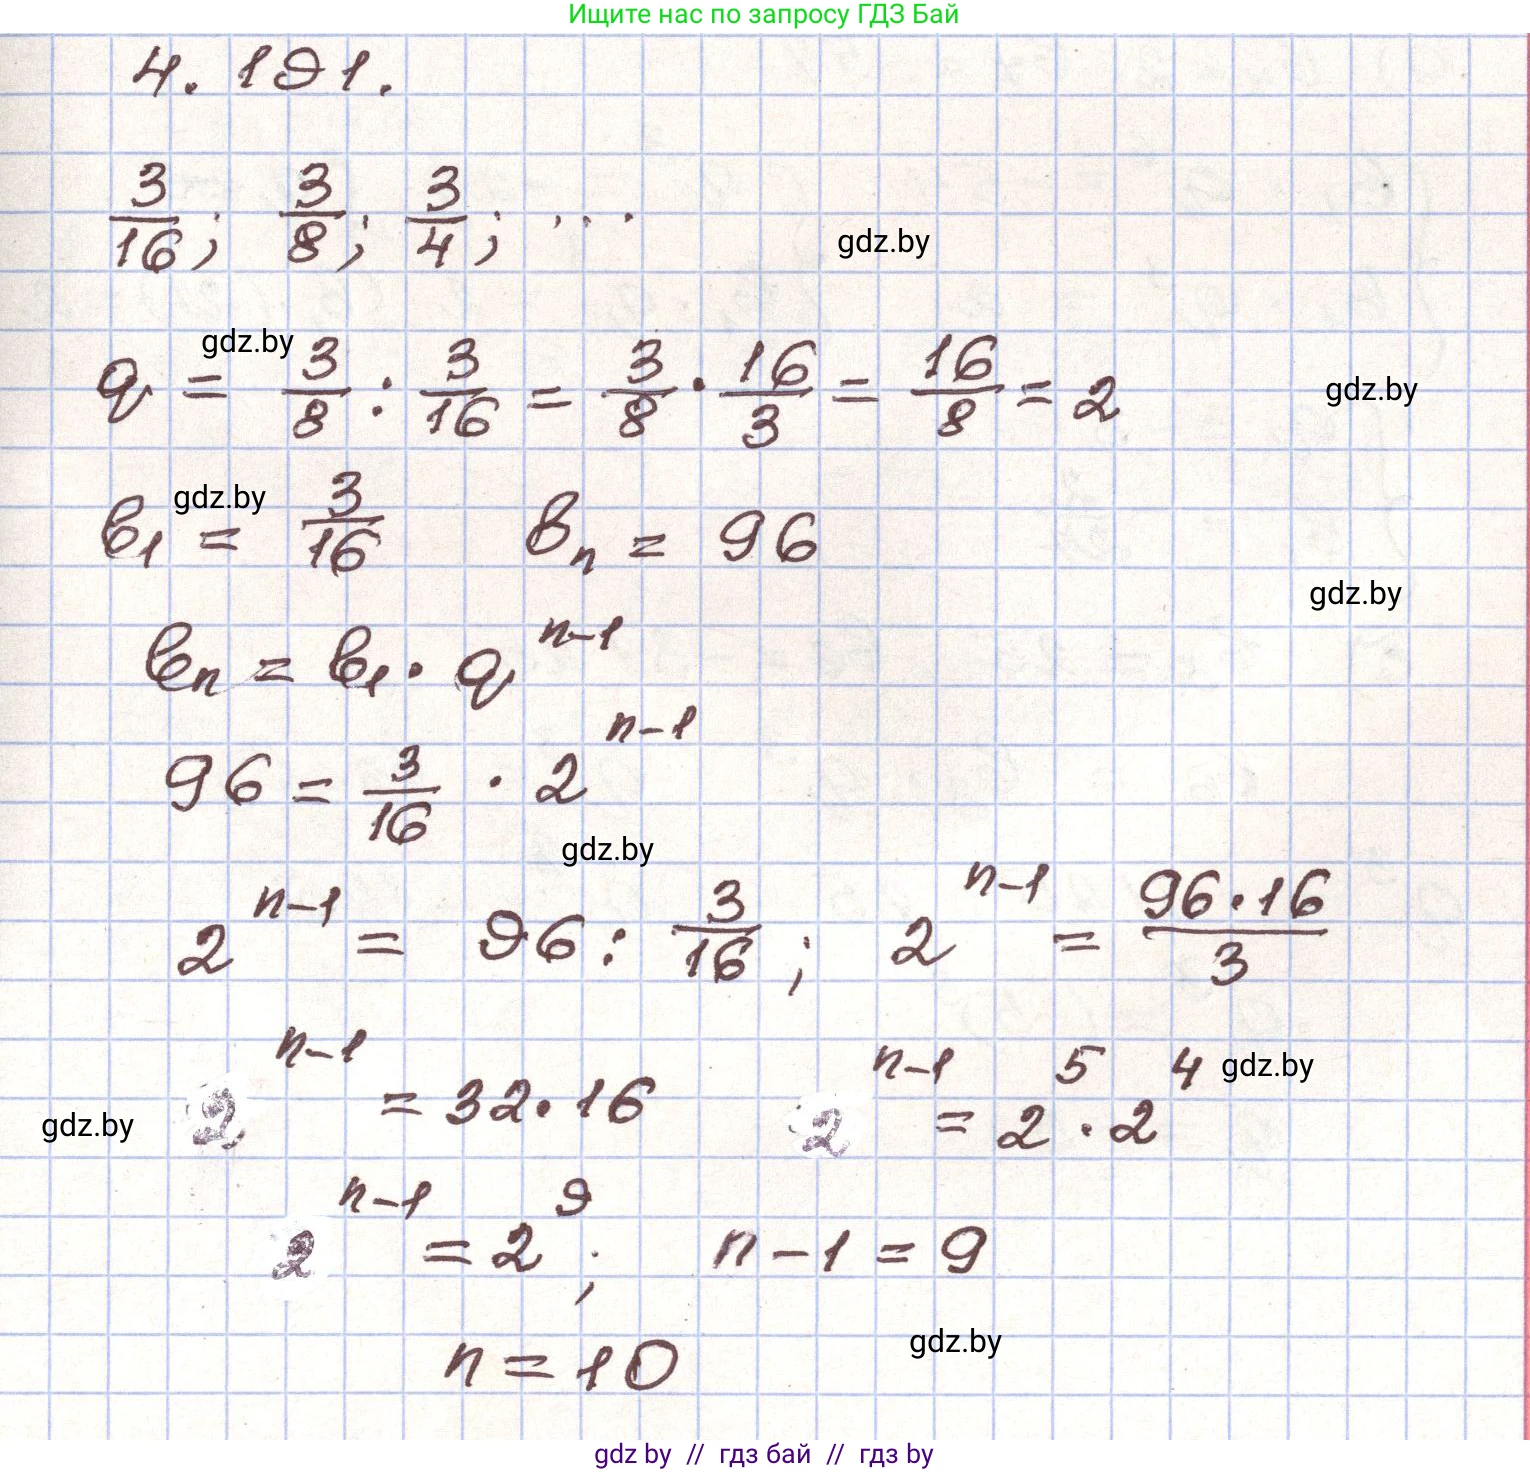 Ищите нас по запросу ГДЗ Бай
4.191.
3/16; 3/8; 3/4; ...
gdz.by
gdz.by
q = 3/8 : 3/16 = 3/8 · 16/3 = 16/8 = 2
gdz.by
gdz.by
b₁ = 3/16 bₙ = 96
gdz.by
bₙ = b₁ · qⁿ⁻¹
96 = 3/16 · 2ⁿ⁻¹
gdz.by
2ⁿ⁻¹ = 96 : 3/16; 2ⁿ⁻¹ = 96·16/3
gdz.by
2ⁿ⁻¹ = 32·16 2ⁿ⁻¹ = 2⁵ · 2⁴
gdz.by
2ⁿ⁻¹ = 2⁹; n-1 = 9
n = 10
gdz.by
gdz by // гдз бай // гдз by